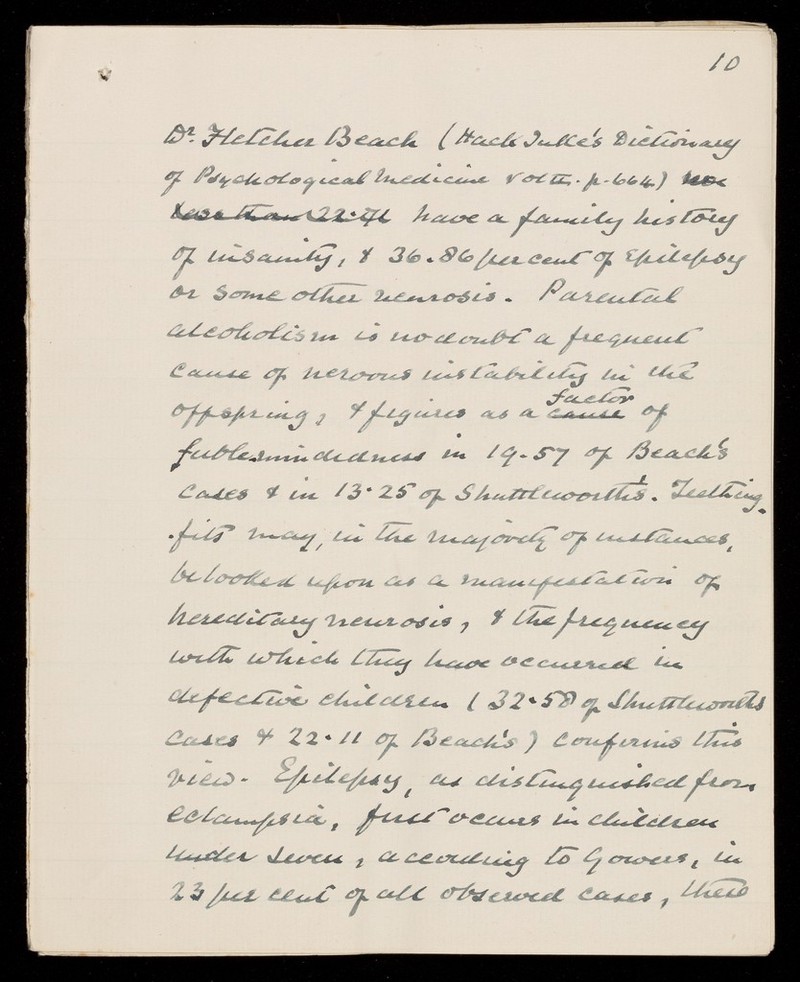 10
Dr. Fletcher Beach (Hack Tuke's Dictionary
of Psychological Medicine Vol II. p. 664) not
less than 22.71 have a family history
of insanity, & 36.86 per cent of Epilepsy
or some other neurosis. Parental
alcoholism is no doubt a frequent
cause of nervous instability in the
factor
offspring, & figures as a cause of
feeblemindedness in 19.57 of Beach's
cases & in 13.25 of Shuttleworth's. Teething.
.fits may, in the majority of instances,
be looked upon as a manifestation of
hereditary neurosis, & the frequency
with which they have occurred in
defective children (32.58 of Shuttleworths
cases & 22.11 of Beach's) confirms this
view. Epilepsy, as distinguished from
eclampsia, first occurs in children
under seven, according to Gowers, in
23 per cent of all observed cases, these